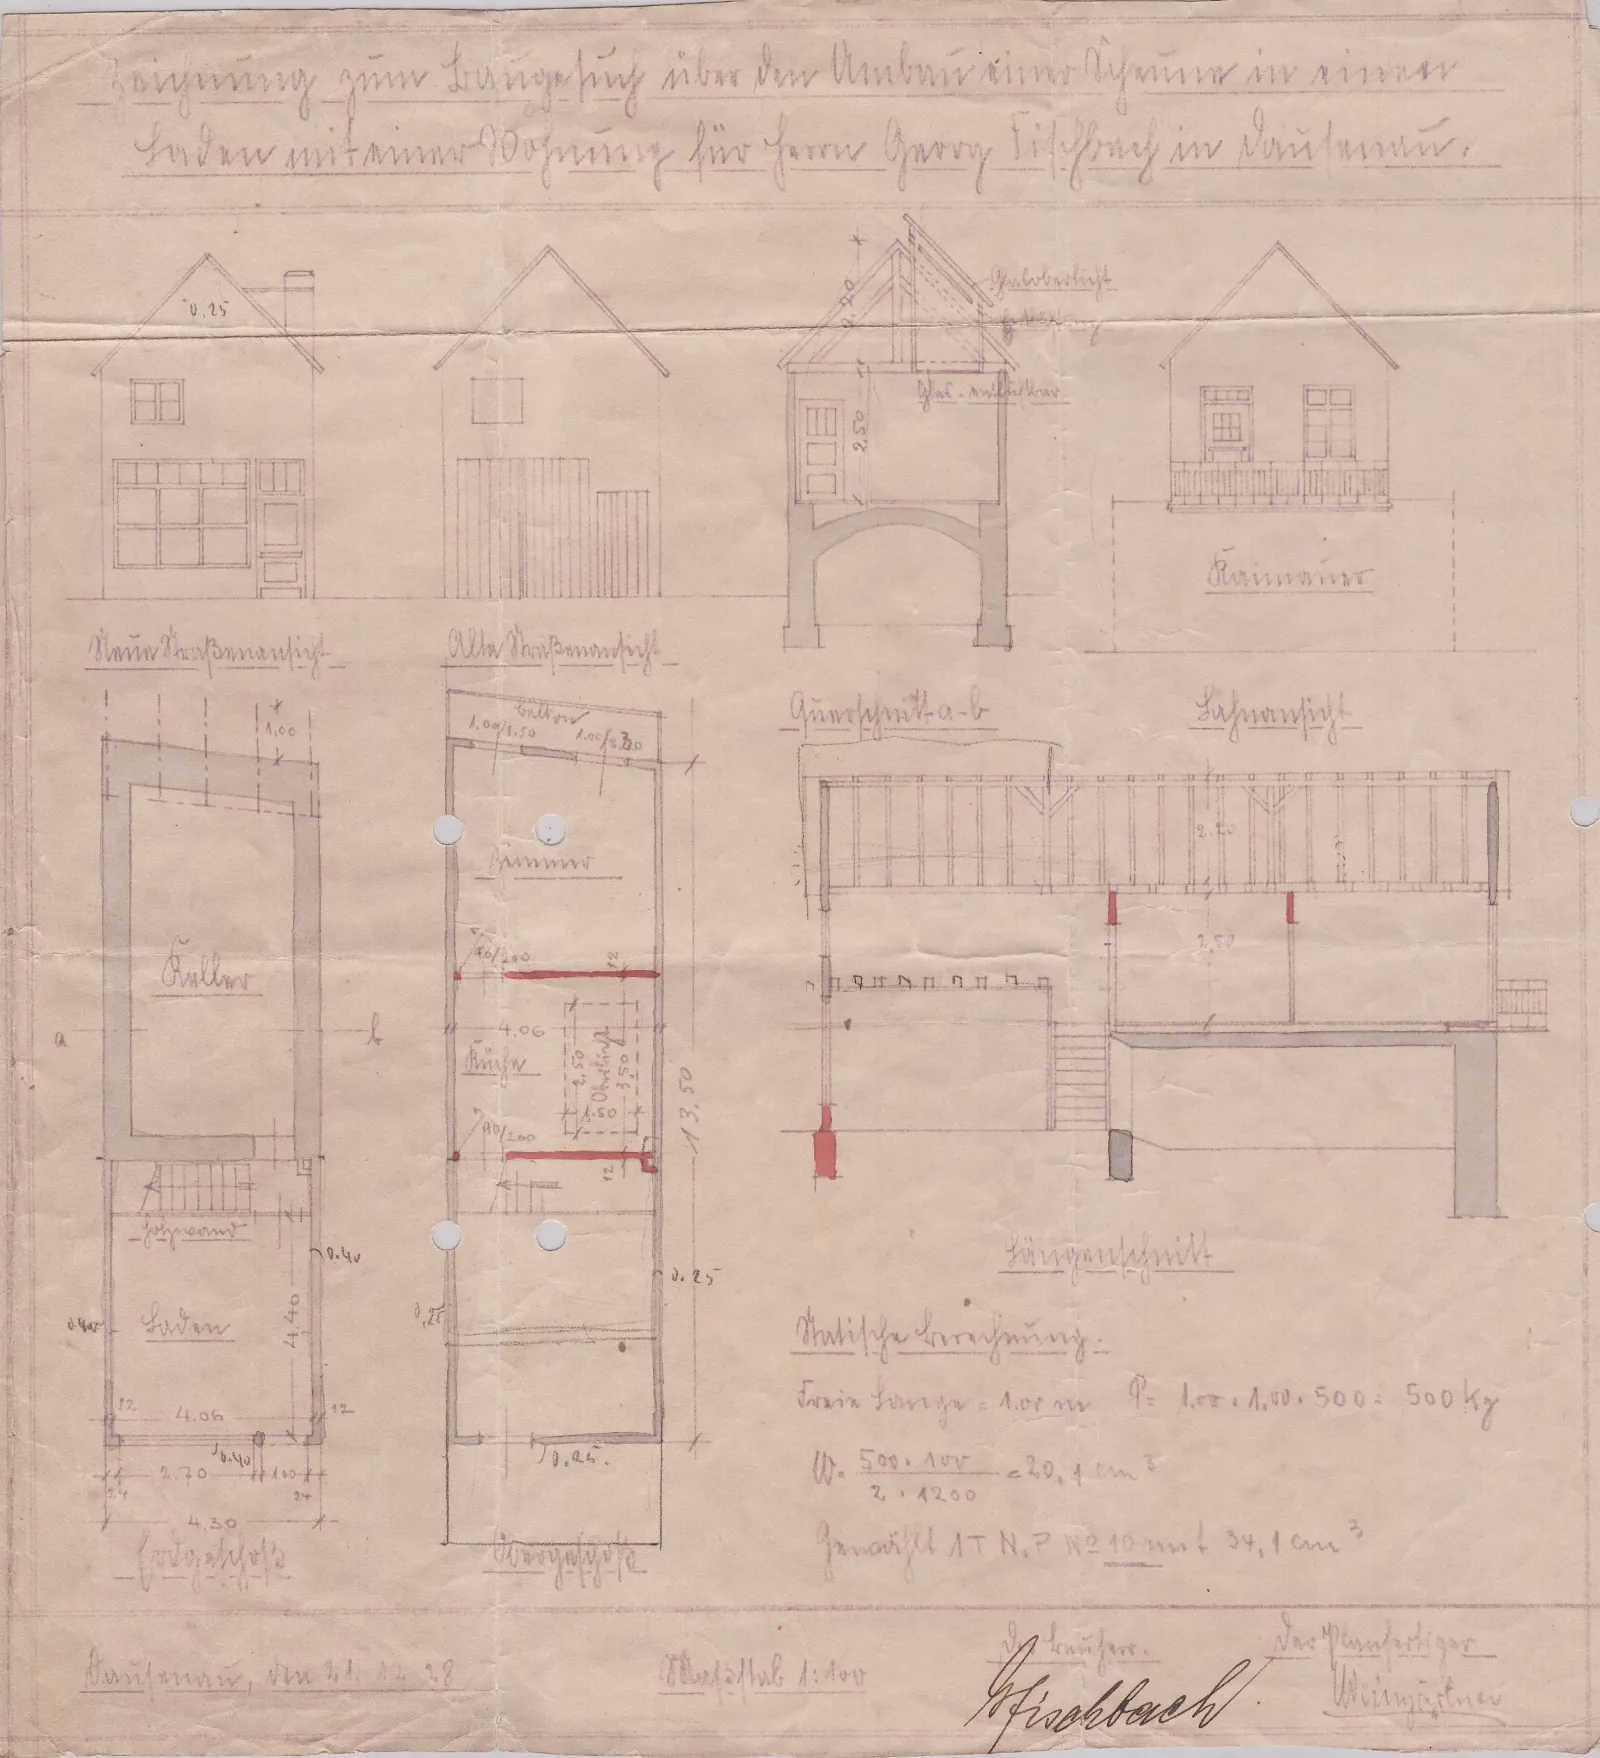 Zeichnung zum Baugesuch über den Umbau einer Scheune in einen
Laden mit einer Wohnung für Herrn Georg Fischbach in Dausenau.
0.25
2.20
Glasoberlicht
Glas. entlüftbar
2.50
Kaimauer
Neue Straßenansicht
Alte Straßenansicht
Querschnitt a-b
Lahnansicht
1.00
Balkon
1.00/1.50
1.00/2.30
Zimmer
Keller
a
b
90/200
12
4.06
Küche
2.50
Oberlicht
3.50
1.50
90/200
12
13.50
2.20
2.50
Holzwand
0.40
Laden
4.40
12
4.06
12
0.40
2.70
1.00
24
24
4.30
Erdgeschoß
0.25
0.25
0.25.
Obergeschoß
Längenschnitt
Statische Berechnung.
Freie Länge = 1.00 m P = 1.00 · 1.00 · 500 = 500 kg
W = 500 · 100 / 2 · 1200 = 20,1 cm³
Gewählt 1 T N.P № 10 mit 34,1 cm³
Dausenau, den 21. 12. 28
Maßstab 1:100
Der Bauherr.
Fischbach
Der Planfertiger
Weingärtner